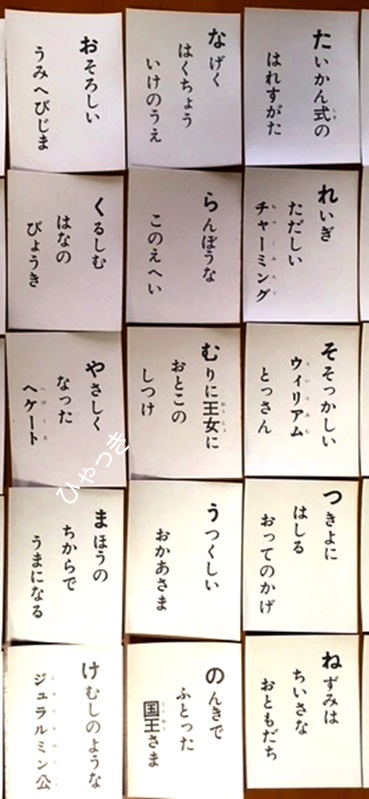 たいかん式の
はれすがた
れいぎ
ただしい
チャーミング
そそっかしい
ウィリアム
とっさん
つきよに
はしる
おってのかげ
ねずみは
ちいさな
おともだち
なげく
はくちょう
いけのうえ
らんぼうな
このえへい
むりに王女に
おとこの
しつけ
うつくしい
おかあさま
のんきで
ふとった
国王さま
おそろしい
うみへびじま
くるしむ
はなの
びょうき
やさしく
なった
ヘケート
まほうの
ちからで
うまになる
けむしのような
ジュラルミン公
ひゃっき